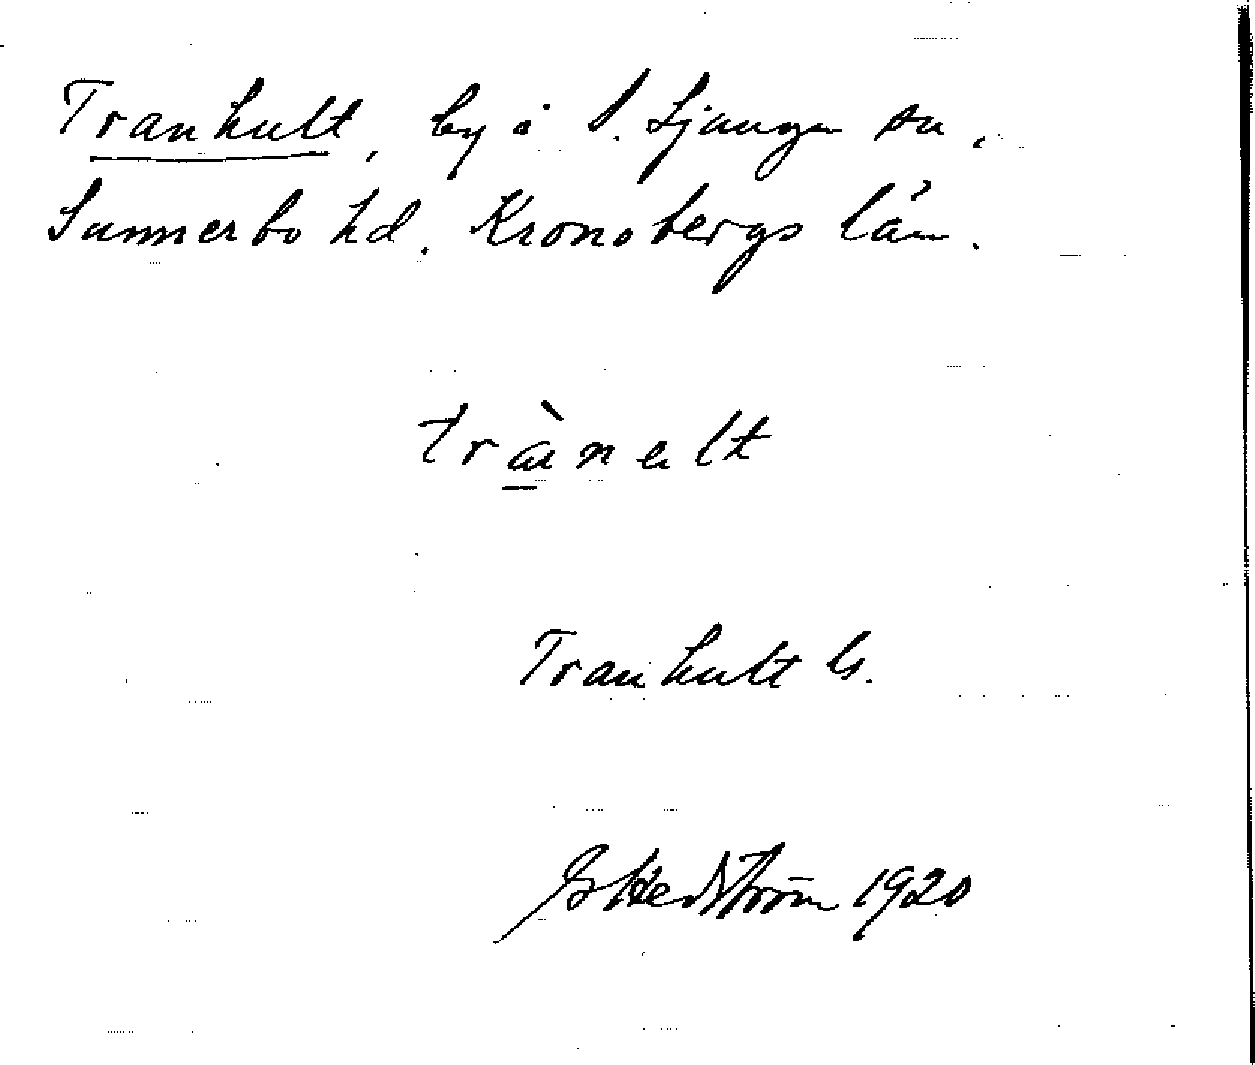 Tranhult, by i S. Ljunga sn,
Sunnerbo hd. Kronobergs län.
trànelt
Tranhult G.
G Hedström 1920